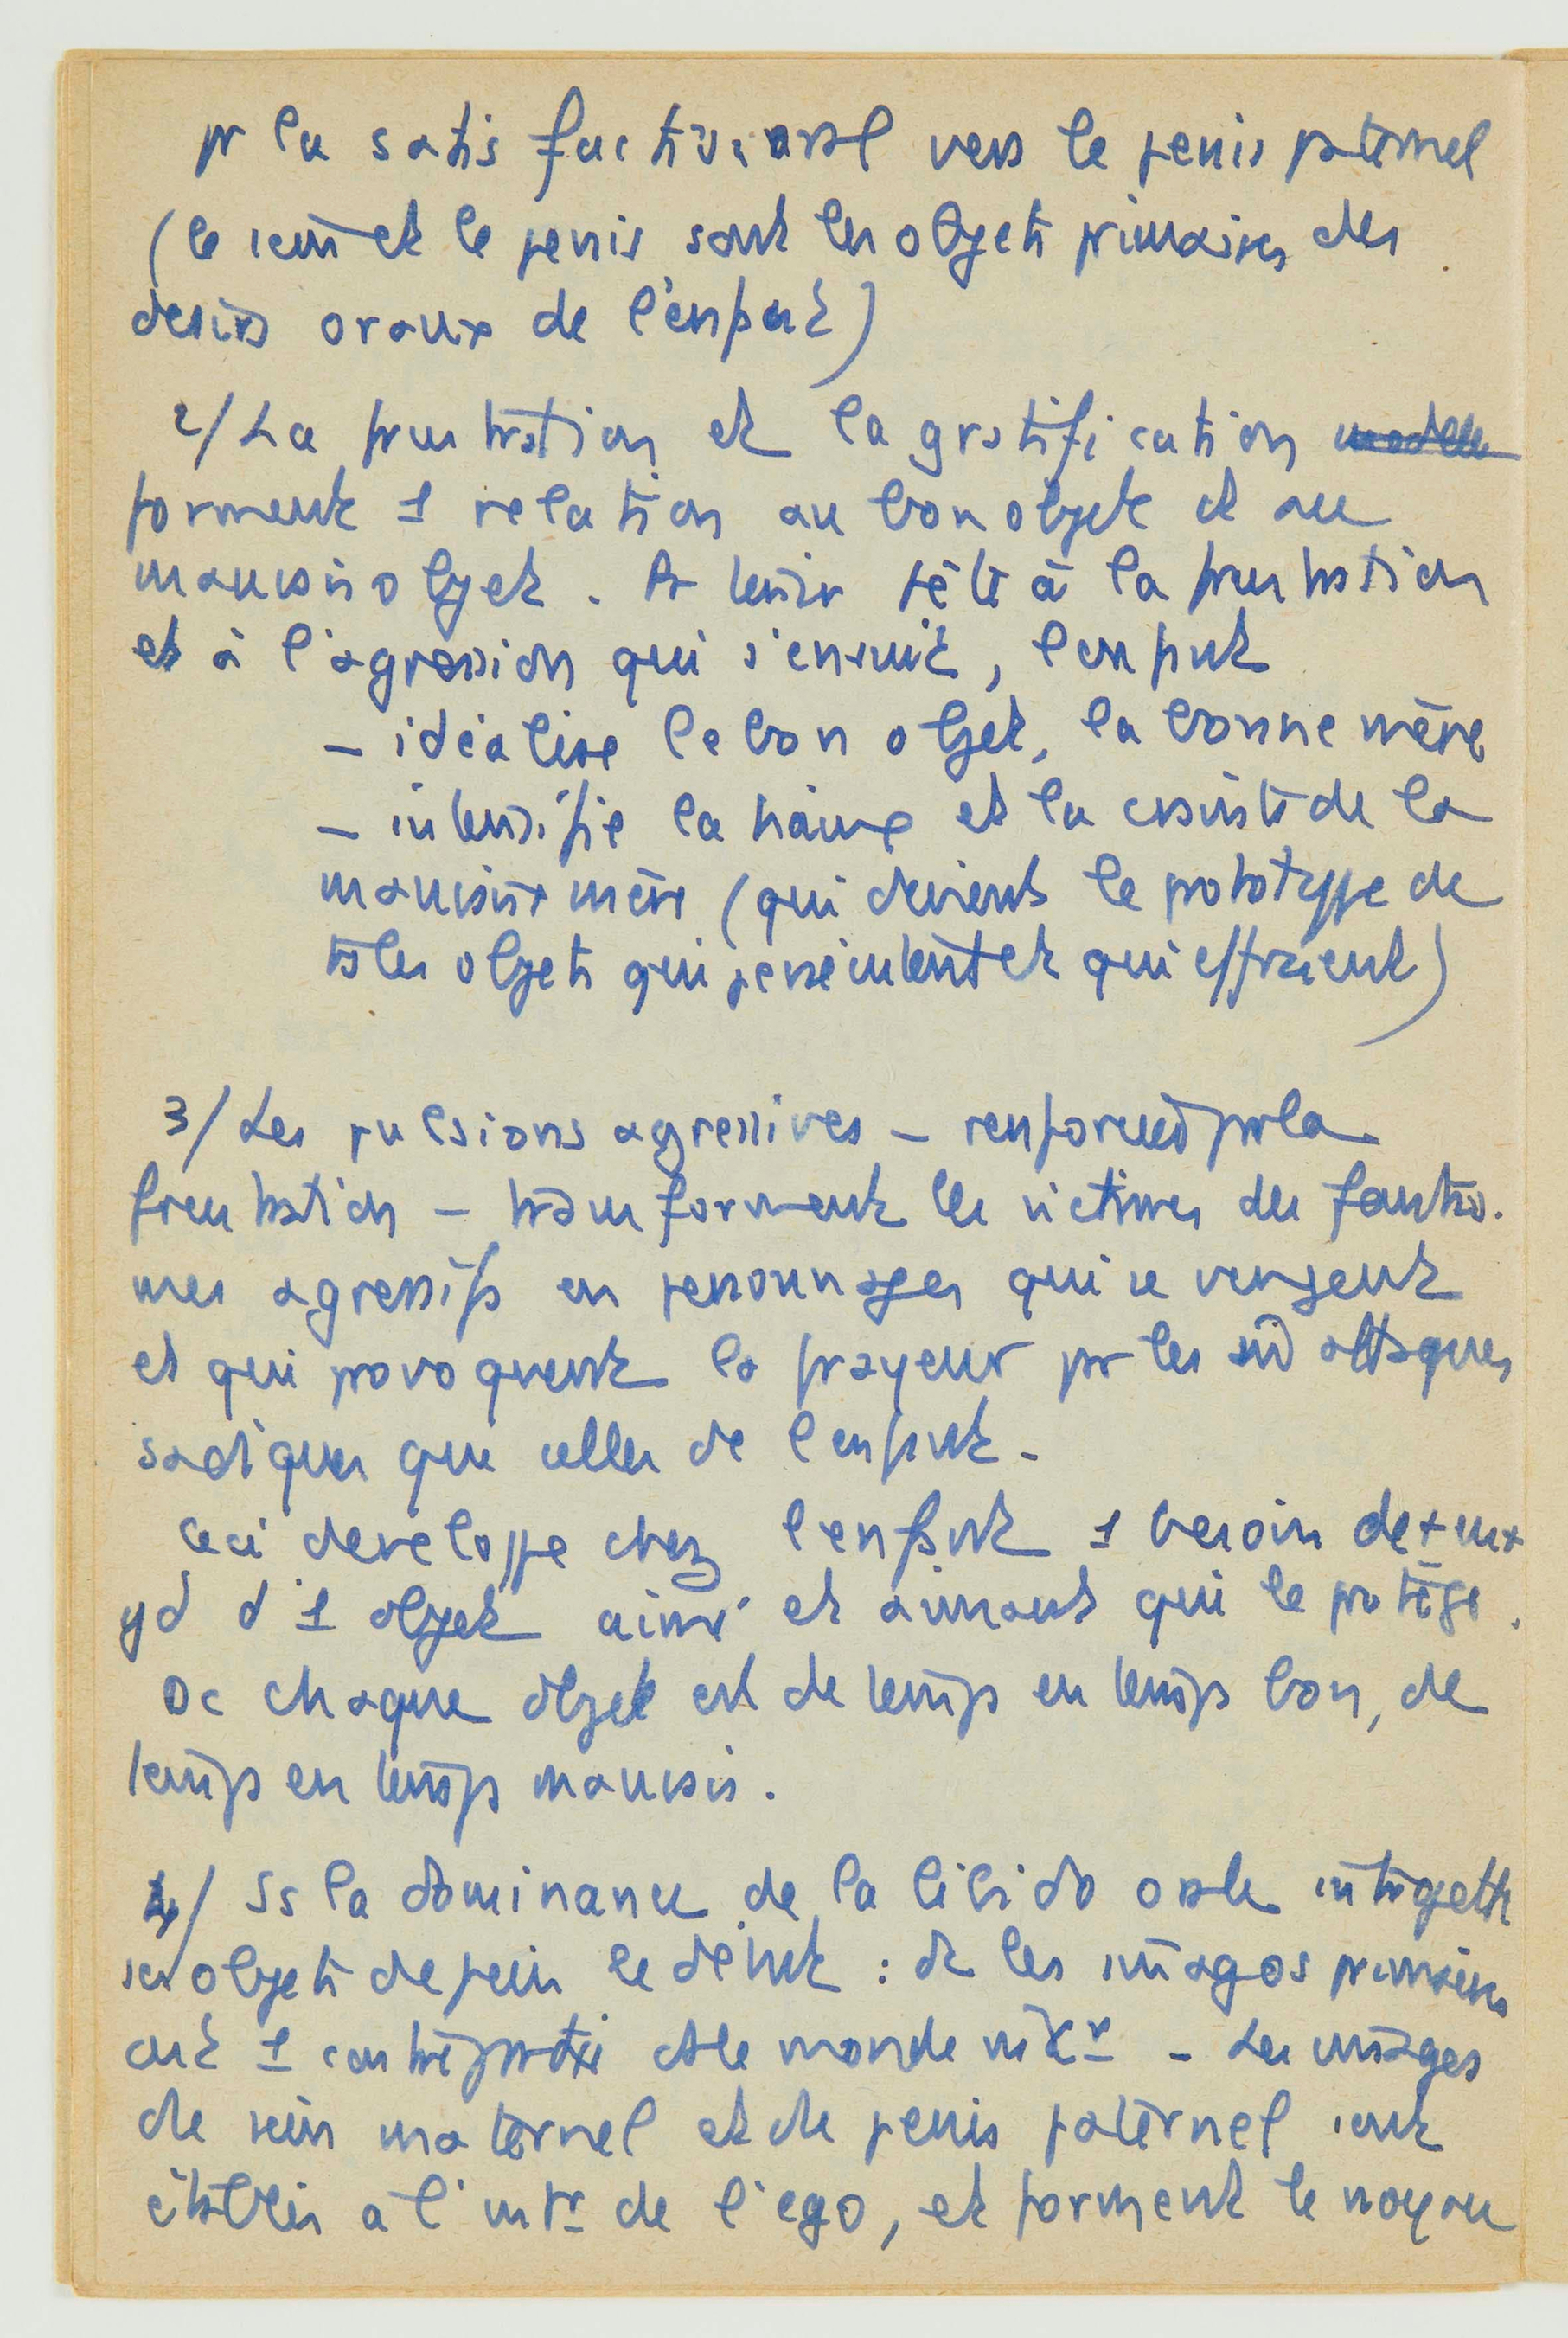 pr la satisfaction oral vers le penis paternel
(le sein et le penis sont les objets primaires des
desirs oraux de l'enfant)
2/ La frustration et la gratification
forment 1 relation au bon objet et au
mauvais objet. A à la frustration
et à l'agression qui s'ensuit, l'enfant
– idéalise le bon objet, la bonne mère
– intensifie la haine et la crainte de la
mauvaise mère (qui devient le prototype de
ts les objets qui persécutent et qui effraient)
3/ Les pulsions agressives – renforcées par la
frustration – transforment les victimes des fantas-
mes agressifs en personnages qui se vengent
et qui provoquent la frayeur pr les attaques
sadiques que celles de l'enfant –
Ceci developpe chez l'enfant 1 besoin de + en +
gd d'1 objet aimé et aimant qui le protège.
Dc chaque objet est de temps en temps bon, de
temps en temps mauvais.
4/ Ss la dominance de la libido orale introjette
ses objets depuis le début : dc les imagos primaires
ont 1 contrepartie ds le monde intr – Les images
de sein maternel et de penis paternel sont
établies a l'intr de l'ego, et forment le noyau